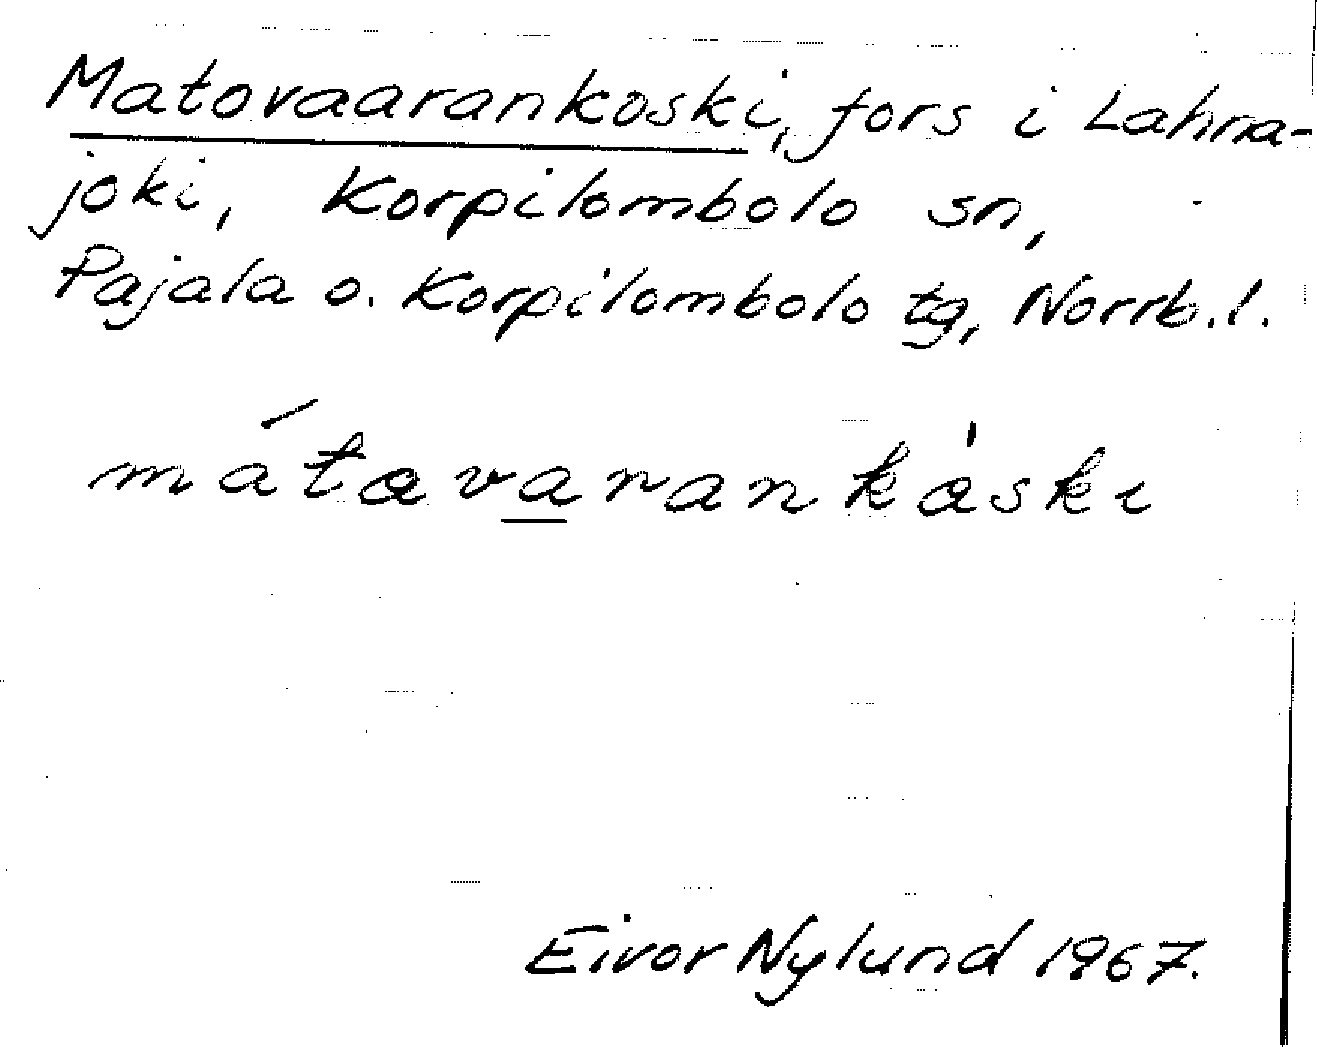 Matovaarankoski, fors i Lahna-
joki, Korpilombolo sn,
Pajala o. Korpilombolo tg, Norrb.l.
mátavarankåski
Eivor Nylund 1967.